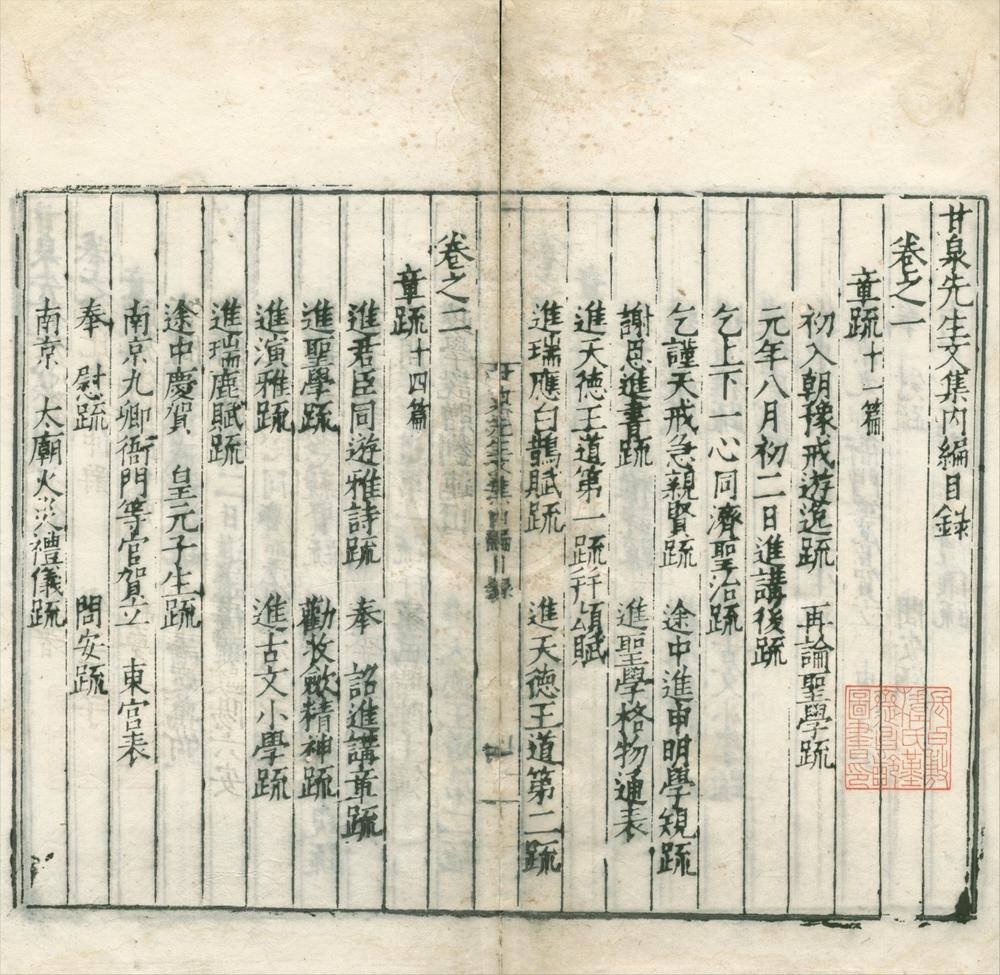 甘泉先生文集內編目錄
卷之一
章疏十一篇
初入朝豫戒遊逸疏　再論聖學疏
元年八月初二日進講後疏
乞上下一心同濟聖治疏
乞謹天戒急親賢疏　途中進申明學規疏
謝恩進書疏　進聖學格物通表
進天德王道第一疏幷頌賦
進瑞應白鵲賦疏　進天德王道第二疏
甘泉先生文集內編目錄
卷之二
章疏十四篇
進君臣同遊雅詩疏　奉　詔進講章疏
進聖學疏　勸收歛精神疏
進演雅疏　進古文小學疏
進瑞鹿賦疏
途中慶賀　皇元子生疏
南京九卿衙門等官賀立　東宮表
奉　慰疏　問安疏
南京　太廟火災禮儀疏